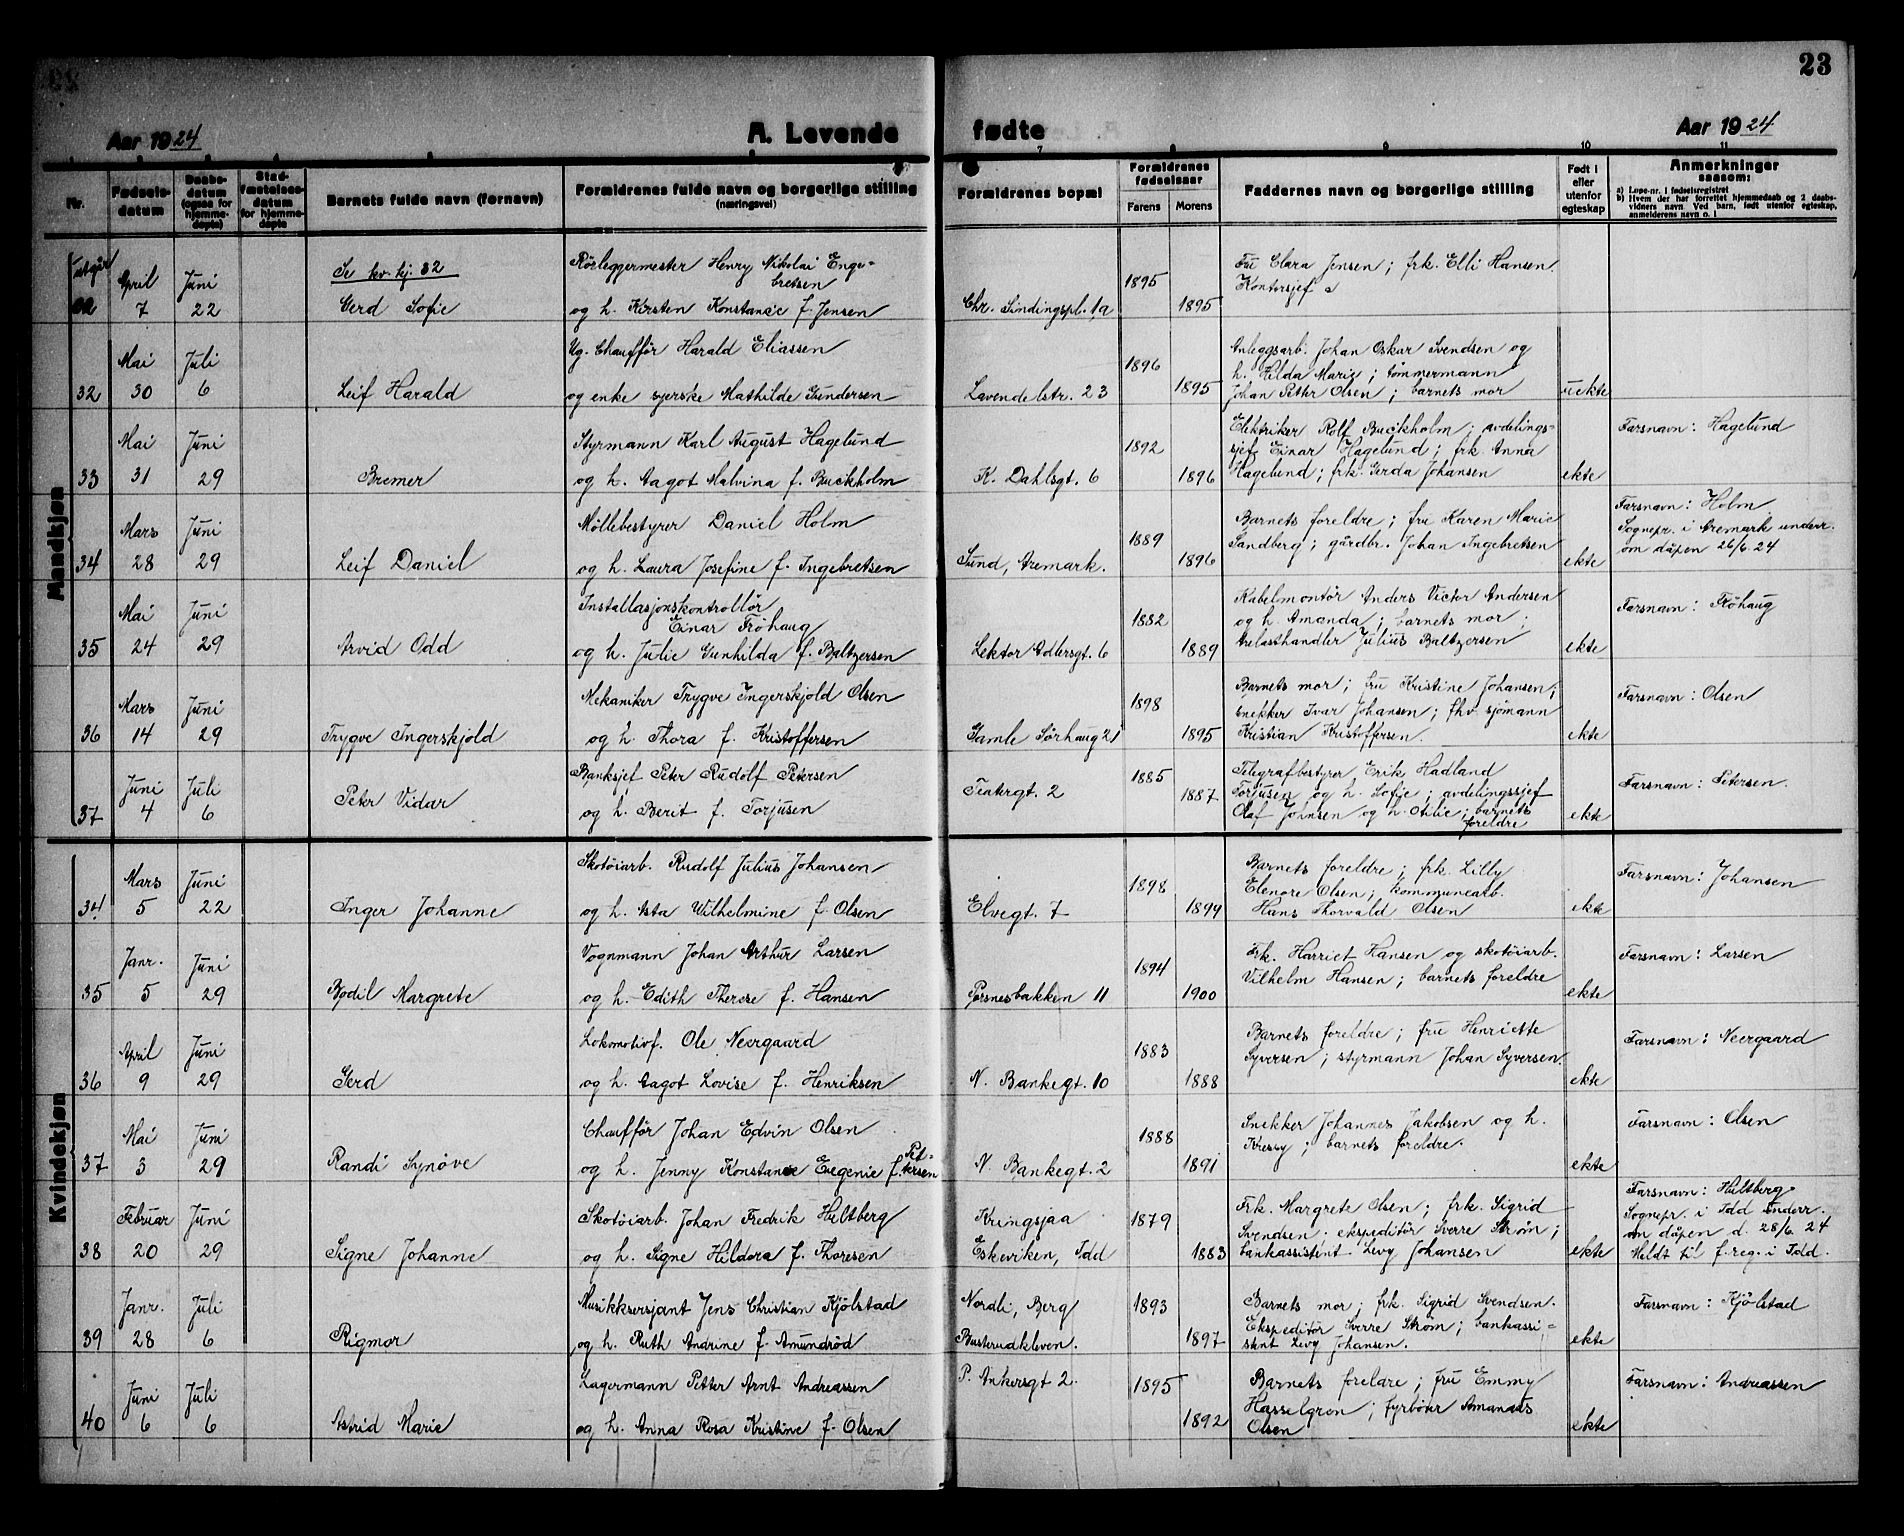 23
Aar 1924
A. Levende
fødte
Aar 1924
7
8
9
10
11
Nr.
Fødsels-
datum
Daabs-
datum
(ogsaa for
hjemme-
døpte)
Stad-
fæstelses-
datum
for hjemme-
døpte
Barnets fulde navn (fornavn)
Forældrenes fulde navn og borgerlige stilling
(næringsvei)
Forældrenes bopæl
Forældrenes
fødselsaar
Farens
Morens
Faddernes navn og borgerlige stilling
Født i
eller
utenfor
egteskap
Anmerkninger
saasom:
a) Løpe-nr. i fødselsregistret
b) Hvem der har forrettet hjemmedaab og 2 daabs-
vidners navn. Ved barn, født utenfor egteskap,
anmelderens navn o. l.
Mandkjøn
utgår
April 7
Juni 22
Se kv. kj. 32
Gerd Sofie
Rörleggermester Henry Nikolai Enge-
bretsen
og h. Kirsten Konstance f. Jensen
Chr. Sindingspl. 1a
1895
1895
Fru Clara Jensen; frk. Elli Hansen.
Kontorsjef
32
Mai 30
Juli 6
Leif Harald
Ug. Chaufför Harald Eliassen
og enke syerske Mathilde Gundersen
Lavendelstr. 23
1896
1895
Anleggsarb. Johan Oskar Svendsen og
h. Hilda Marie; tömmermann
Johan Petter Olsen; barnets mor
uekte
33
Mai 31
Juni 29
Bremer
Styrmann Karl August Hagelund
og h. Aagot Malvina f. Buckholm
K. Dahlsgt. 6
1892
1896
Elektriker Rolf Buckholm; avdelings-
sjef Einar Hagelund; frk. Anna
Hagelund; frk. Gerda Johansen
ekte
Farsnavn: Hagelund
34
Mars 28
Juni 29
Leif Daniel
Møllebestyrer Daniel Holm
og h. Laura Josefine f. Ingebretsen
Sund, Aremark.
1889
1896
Barnets foreldre; fru Karen Marie
Sandberg; gårdbr. Johan Ingebretsen
ekte
Farsnavn: Holm.
Sognepr. i Aremark underr.
om dåpen 26/6. 24
35
Mai 24
Juni 29
Arvid Odd
Installasjonskontrollör
Einar Fröhaug
og h. Julie Gunhilda f. Baltzersen
Lektor Adlersgt. 6
1882
1889
Kabelmontör Anders Victor Andersen
og h. Amanda; barnets mor;
Julius Baltzersen
ekte
Farsnavn: Fröhaug
36
Mars 14
Juni 29
Trygve Ingerskjold
Mekaniker Trygve Ingerskjold Olsen
og h. Thora f. Kristoffersen
Gamle Sörhaug 21
1898
1895
Barnets mor; fru Kristine Johansen;
snekker Ivar Johansen; fhv. sjömann
Kristian Kristoffersen.
ekte
Farsnavn: Olsen
37
Juni 4
Juli 6
Peter Vidar
Banksjef Peter Rudolf Petersen
og h. Berit f. Torjusen
Teatergt. 2
1885
1887
Telegrafbestyrer Erik Hadland
Torjusen og h. Sofie; avdelingssjef
Olaf Johnsen og h. Otilie; barnets
foreldre
ekte
Farsnavn: Petersen.
Kvindekjøn
34
Mars 5
Juni 22
Inger Johanne
Skotöiarb. Rudolf Julius Johansen
og h. Asta Wilhelmine f. Olsen
Elvegt. 7
1898
1899
Barnets foreldre; frk. Lilly
Elenore Olsen; kommunearb.
Hans Thorvald Olsen
ekte
Farsnavn: Johansen
35
Janr. 5
Juni 29
Bodil Margrete
Vognmann Johan Arthur Larsen
og h. Edith Therese f. Hansen
Porsnesbakken 11
1894
1900
Frk. Harriet Hansen og skotöiarb.
Vilhelm Hansen; barnets foreldre
ekte
Farsnavn: Larsen
36
April 9
Juni 29
Gerd
Lokomotivf. Ole Neergaard
og h. Aagot Lovise f. Henriksen
N. Bankegt. 10
1883
1888
Barnets foreldre; fru Henriette
Syversen; styrmann Johan Syversen.
ekte
Farsnavn: Neergaard
37
Mai 3
Juni 29
Randi Synöve
Chaufför Johan Edvin Olsen
og h. Jenny Konstance Eugenie f. Pet-
tersen
N. Bankegt. 2
1888
1891
Snekker Johannes Jakobsen og h.
barnets foreldre.
ekte
Farsnavn: Olsen
38
Februar 20
Juni 29
Signe Johanne
Skotöiarb. Johan Fredrik Hultberg
og h. Signe Hildora f. Thoresen
Kringsjaa
Eskeviken, Idd
1879
1883
Frk. Margrete Olsen; frk. Sigrid
Svendsen; ekspeditör Sverre Ström;
bankassistent Levy Johansen
ekte
Farsnavn: Hultberg.
Sognepr. i Idd underr.
om dåpen d. 28/6. 24
Meldt til f.reg. i Idd.
39
Janr. 28
Juli 6
Rigmor
Musikksersjant Jens Christian Kjölstad
og h. Ruth Andrine f. Amundröd
Nordli, Berg
Busterudkleven.
1893
1897
Barnets mor; frk. Sigrid Svendsen.
Ekspeditör Sverre Ström; bankassi-
stent Levy Johansen.
ekte
Farsnavn: Kjölstad
40
Juni 6
Juli 6
Astrid Marie
Lagermann Petter Arnt Andreassen
og h. Anna Rosa Kristine f. Olsen
P. Ankersgt 2.
1895
1892
Barnets foreldre; fru Emmy
Hasselgren; fyrböter Amandus
Olsen
ekte
Farsnavn: Andreassen